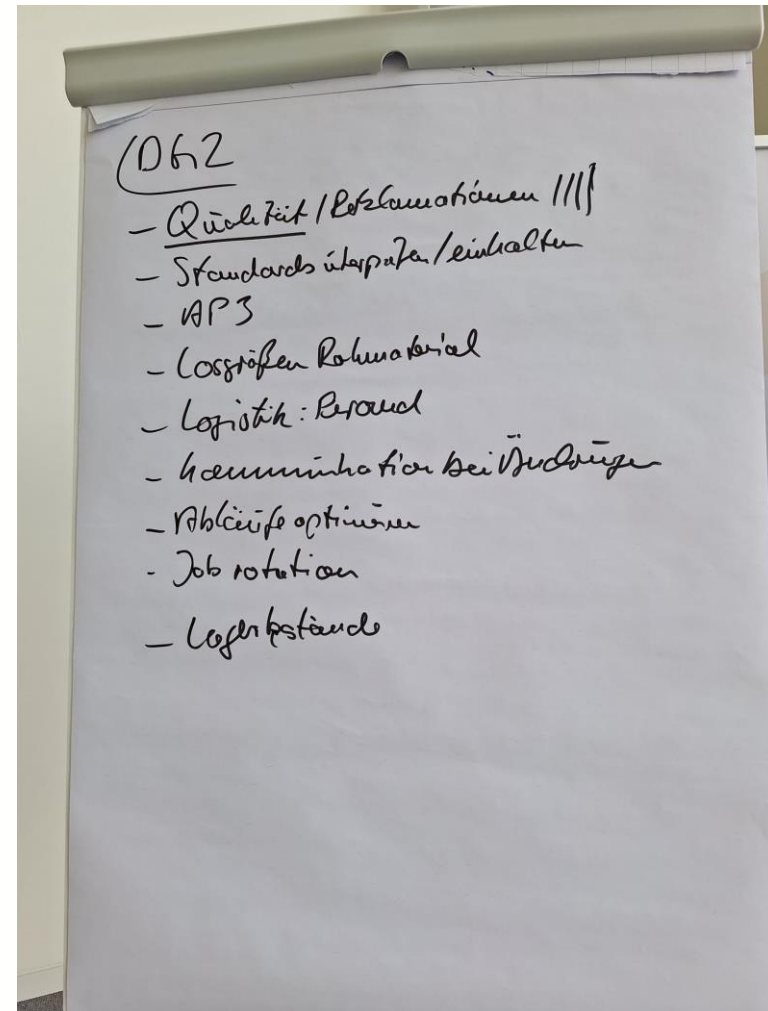 DG2
- Qualität / Reklamationen ||||
- Standards überprüfen / einhalten
- AP3
- Losgrößen Rohmaterial
- Logistik: Versand
- Kommunikation bei Änderungen
- Abläufe optimieren
- Job rotation
- Lagerbestände